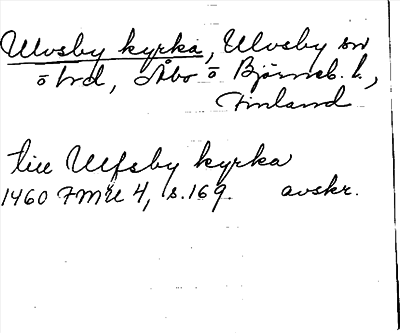 Ulvsby kyrka, Ulvsby sn
o hrd, Åbo o Björneb. l.,
Finland
till Ulfsby kyrka
1460 FMU 4, s. 169. avskr.